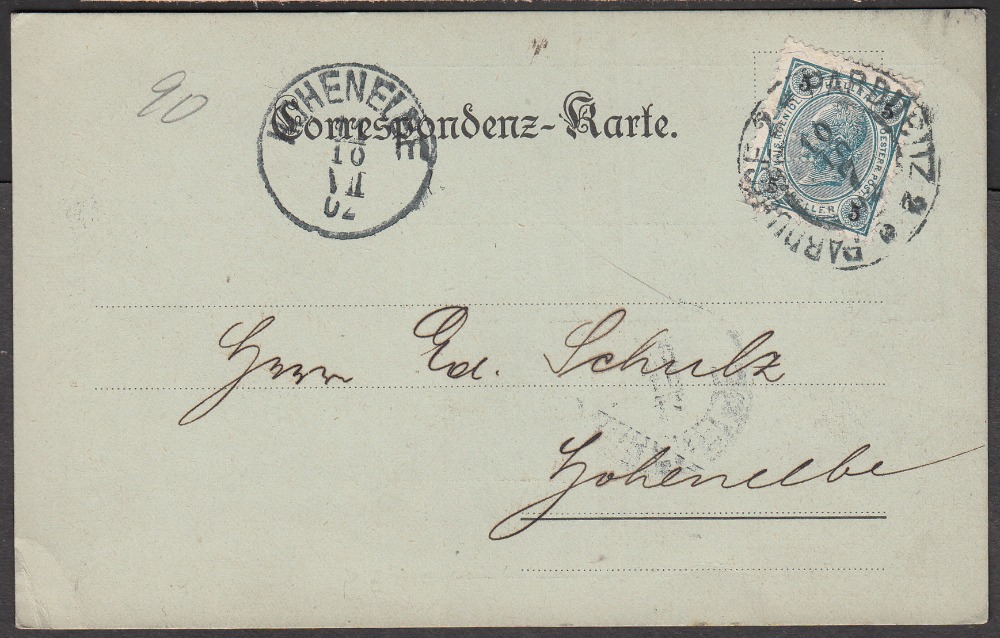 90
HOHENELBE
10
VII
02
Correspondenz-Karte.
PARDUBITZ 2
PARDUBICE 2
10
5
5
5
HELLER
Herrn Ed. Schulz
Hohenelbe